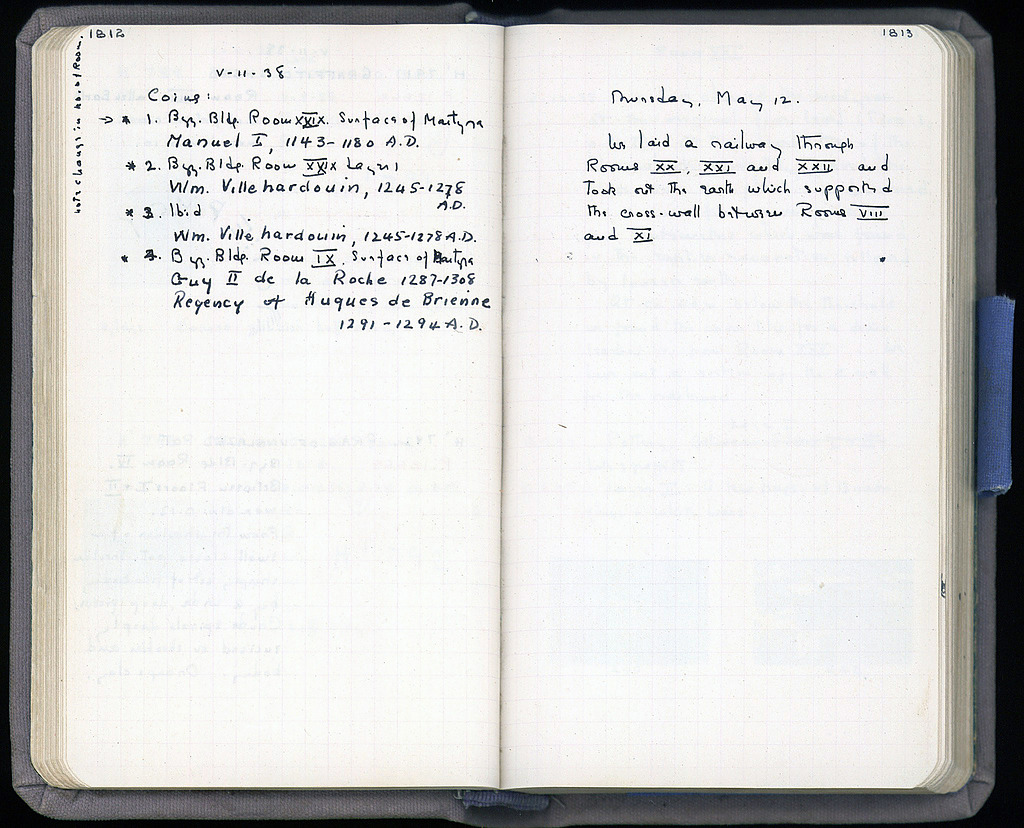 1812
note change in no. of Room.
V-11-38
Coins:
→ * 1. Byz. Bldg. Room XXIX. Surface of Martyra
Manuel I, 1143-1180 A.D.
* 2. Byz. Bldg. Room XXIX Layer 1
Wm. Villehardouin, 1245-1278
A.D.
* 3. Ibid
Wm. Villehardouin, 1245-1278 A.D.
* 4. Byz. Bldg. Room IX. Surface of Martyra
Guy II de la Roche 1287-1308
Regency of Hugues de Brienne
1291-1294 A.D.
1813
Thursday, May 12.
We laid a railway through
Rooms XX, XXI and XXII and
took out the earth which supported
the cross-wall between Rooms VIII
and XI.